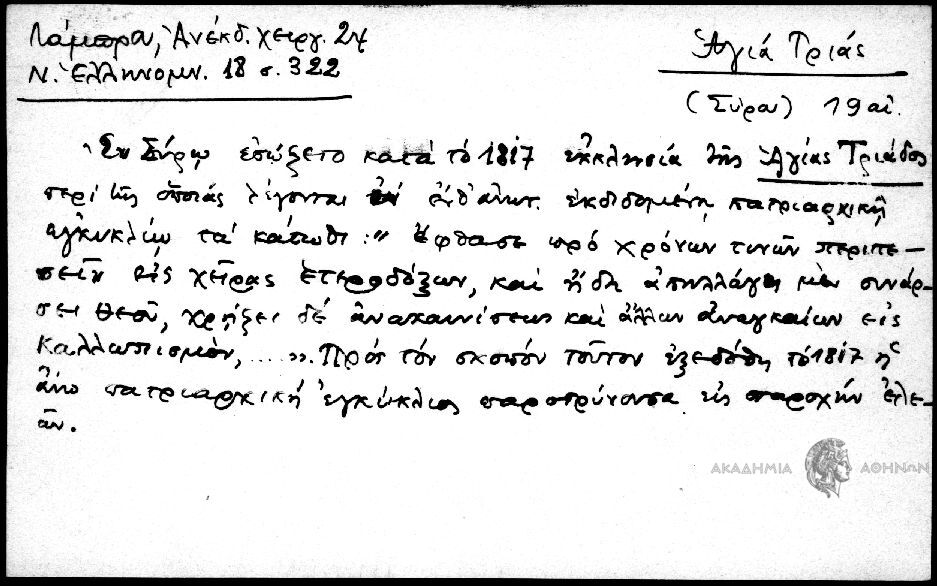 Λάμπρου, Ἀνέκδ. χειργ. 24
Ν. Ἑλληνομν. 18 σ. 322
Ἁγιά Τριάς
(Σύρου) 19 αἰ.
Ἐν Σύρῳ ἐσώζετο κατά τό 1817 ἐκκλησία τῆς Ἁγίας Τριάδος
περί τῆς ὁποίας λέγονται ἐν ἐκδιδομένῃ πατριαρχικῇ
ἐγκυκλίῳ τά κάτωθι: " Ἔφθασε πρό χρόνων τινῶν περιπε-
σεῖν εἰς χεῖρας ἑτεροδόξων, καί ἤδη ἀπηλλάγη μέν συνάρ-
σει Θεοῦ, χρῄζει δέ ἀνακαινίσεως καί ἄλλων ἀναγκαίων εἰς
καλλωπισμόν, ....". Πρός τόν σκοπόν τοῦτον ἐξεδόθη τό 1817 ἡ
ἄνω πατριαρχική ἐγκύκλιος παροτρύνουσα εἰς παροχήν ἐλε-
ῶν.
ΑΚΑΔΗΜΙΑ ΑΘΗΝΩΝ